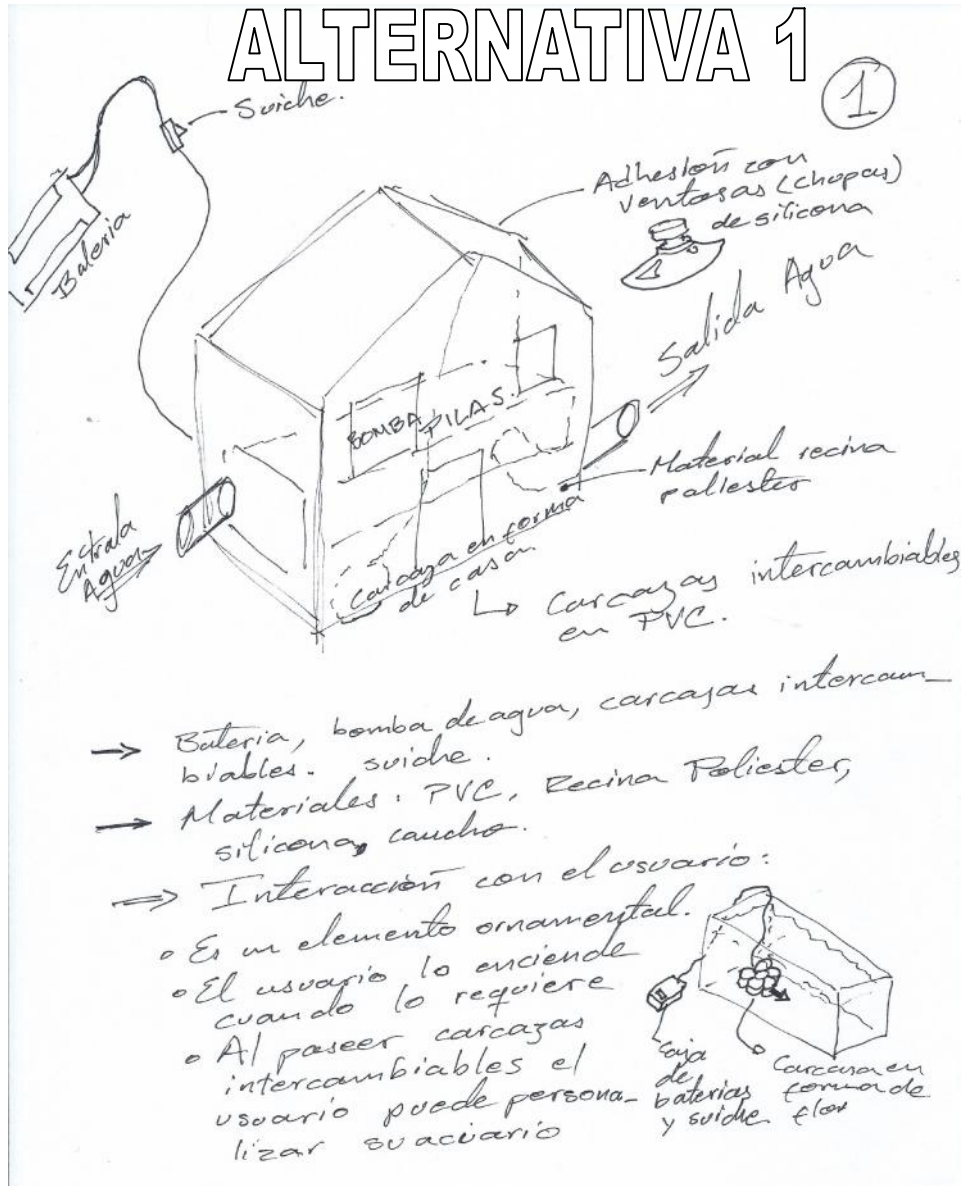 ALTERNATIVA 1
1
Suiche.
Bateria
Adhesión con
ventosas (chupas)
de silicona
Salida Agua
BOMBA PILAS.
Material recina
poliester
Entrada
Agua
Carcaza en forma
de casa.
Carcazas intercambiables
en PVC.
→ Bateria, bomba de agua, carcazas intercam_
biables. suiche.
→ Materiales: PVC, Recina Poliester,
silicona, caucho.
⇒ Interacción con el usuario:
• Es un elemento ornamental.
• El usuario lo enciende
cuando lo requiere
• Al poseer carcazas
intercambiables el
usuario puede persona_
lizar su acuario
Caja
de
baterias
y suiche
Carcasa en
forma de
flor